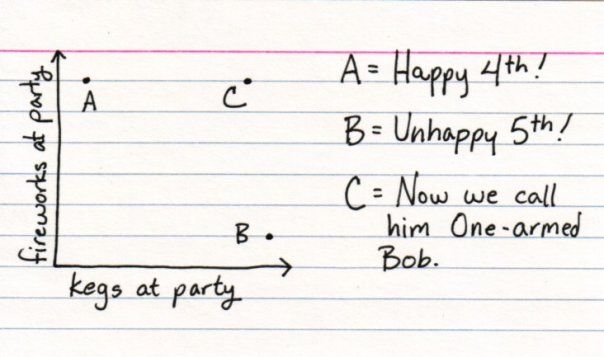 fireworks at party
A
C
B
kegs at party
A = Happy 4th!
B = Unhappy 5th!
C = Now we call
him One-armed
Bob.